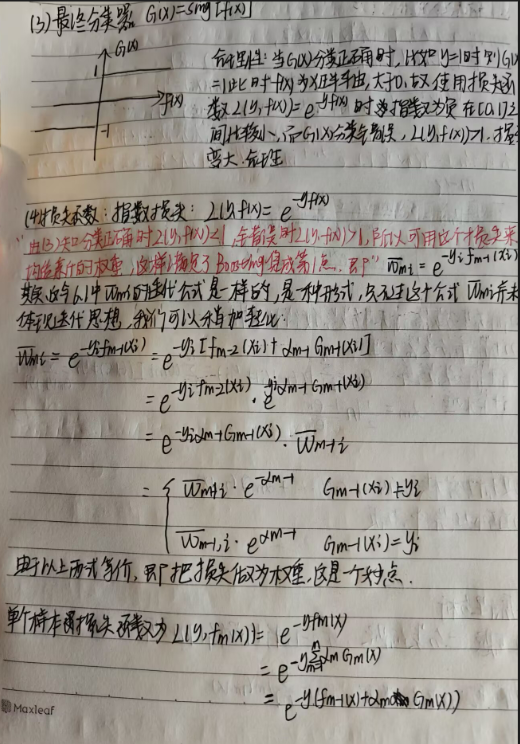 (3)最终分类器 G(x)=sing[f(x)]
G(x)
1
f(x)
-1
合理性:当G(x)分类正确时,比如y=1时则G(x)
=1此时f(x)为X正半轴,大于0,故使用损失函
数L(y,f(x))=e^{-yf(x)}时当指数为负在(0,1)之
间比较小,而G(x)分类错误,L(y,f(x))>1.损失
变大.合理
(4)损失函数:指数损失:L(y,f(x))=e^{-yf(x)}
"由(3)知分类正确时L(y,f(x))<1,错误时L(y,f(x))>1,所以可用这个损失来
权重,这样满足了Boosting集成第1点.即" w̄mi=e^{-yi fm-1(xi)}
其实这与(1)中w̄mi的迭代公式是一样的,是一种形式,只不过这个公式w̄mi并未
体现迭代思想,我们可以稍加变化:
w̄mi=e^{-yi fm-1(xi)}=e^{-yi[fm-2(xi)+αm-1Gm-1(xi)]}
=e^{-yi fm-2(xi)}·e^{-yi αm-1Gm-1(xi)}
=e^{-yi αm-1Gm-1(xi)}·w̄m-1i
={ w̄m-1i·e^{-αm-1} Gm-1(xi)≠yi
w̄m-1,i·e^{αm-1} Gm-1(xi)=yi
由于以上两式等价,即把损失作为权重,这是一个特点.
单个样本损失函数为L(y,fm(x))=e^{-yfm(x)}
=e^{-y∑αmGm(x)}
=e^{-y(fm-1(x)+αmGm(x))}
Maxleaf